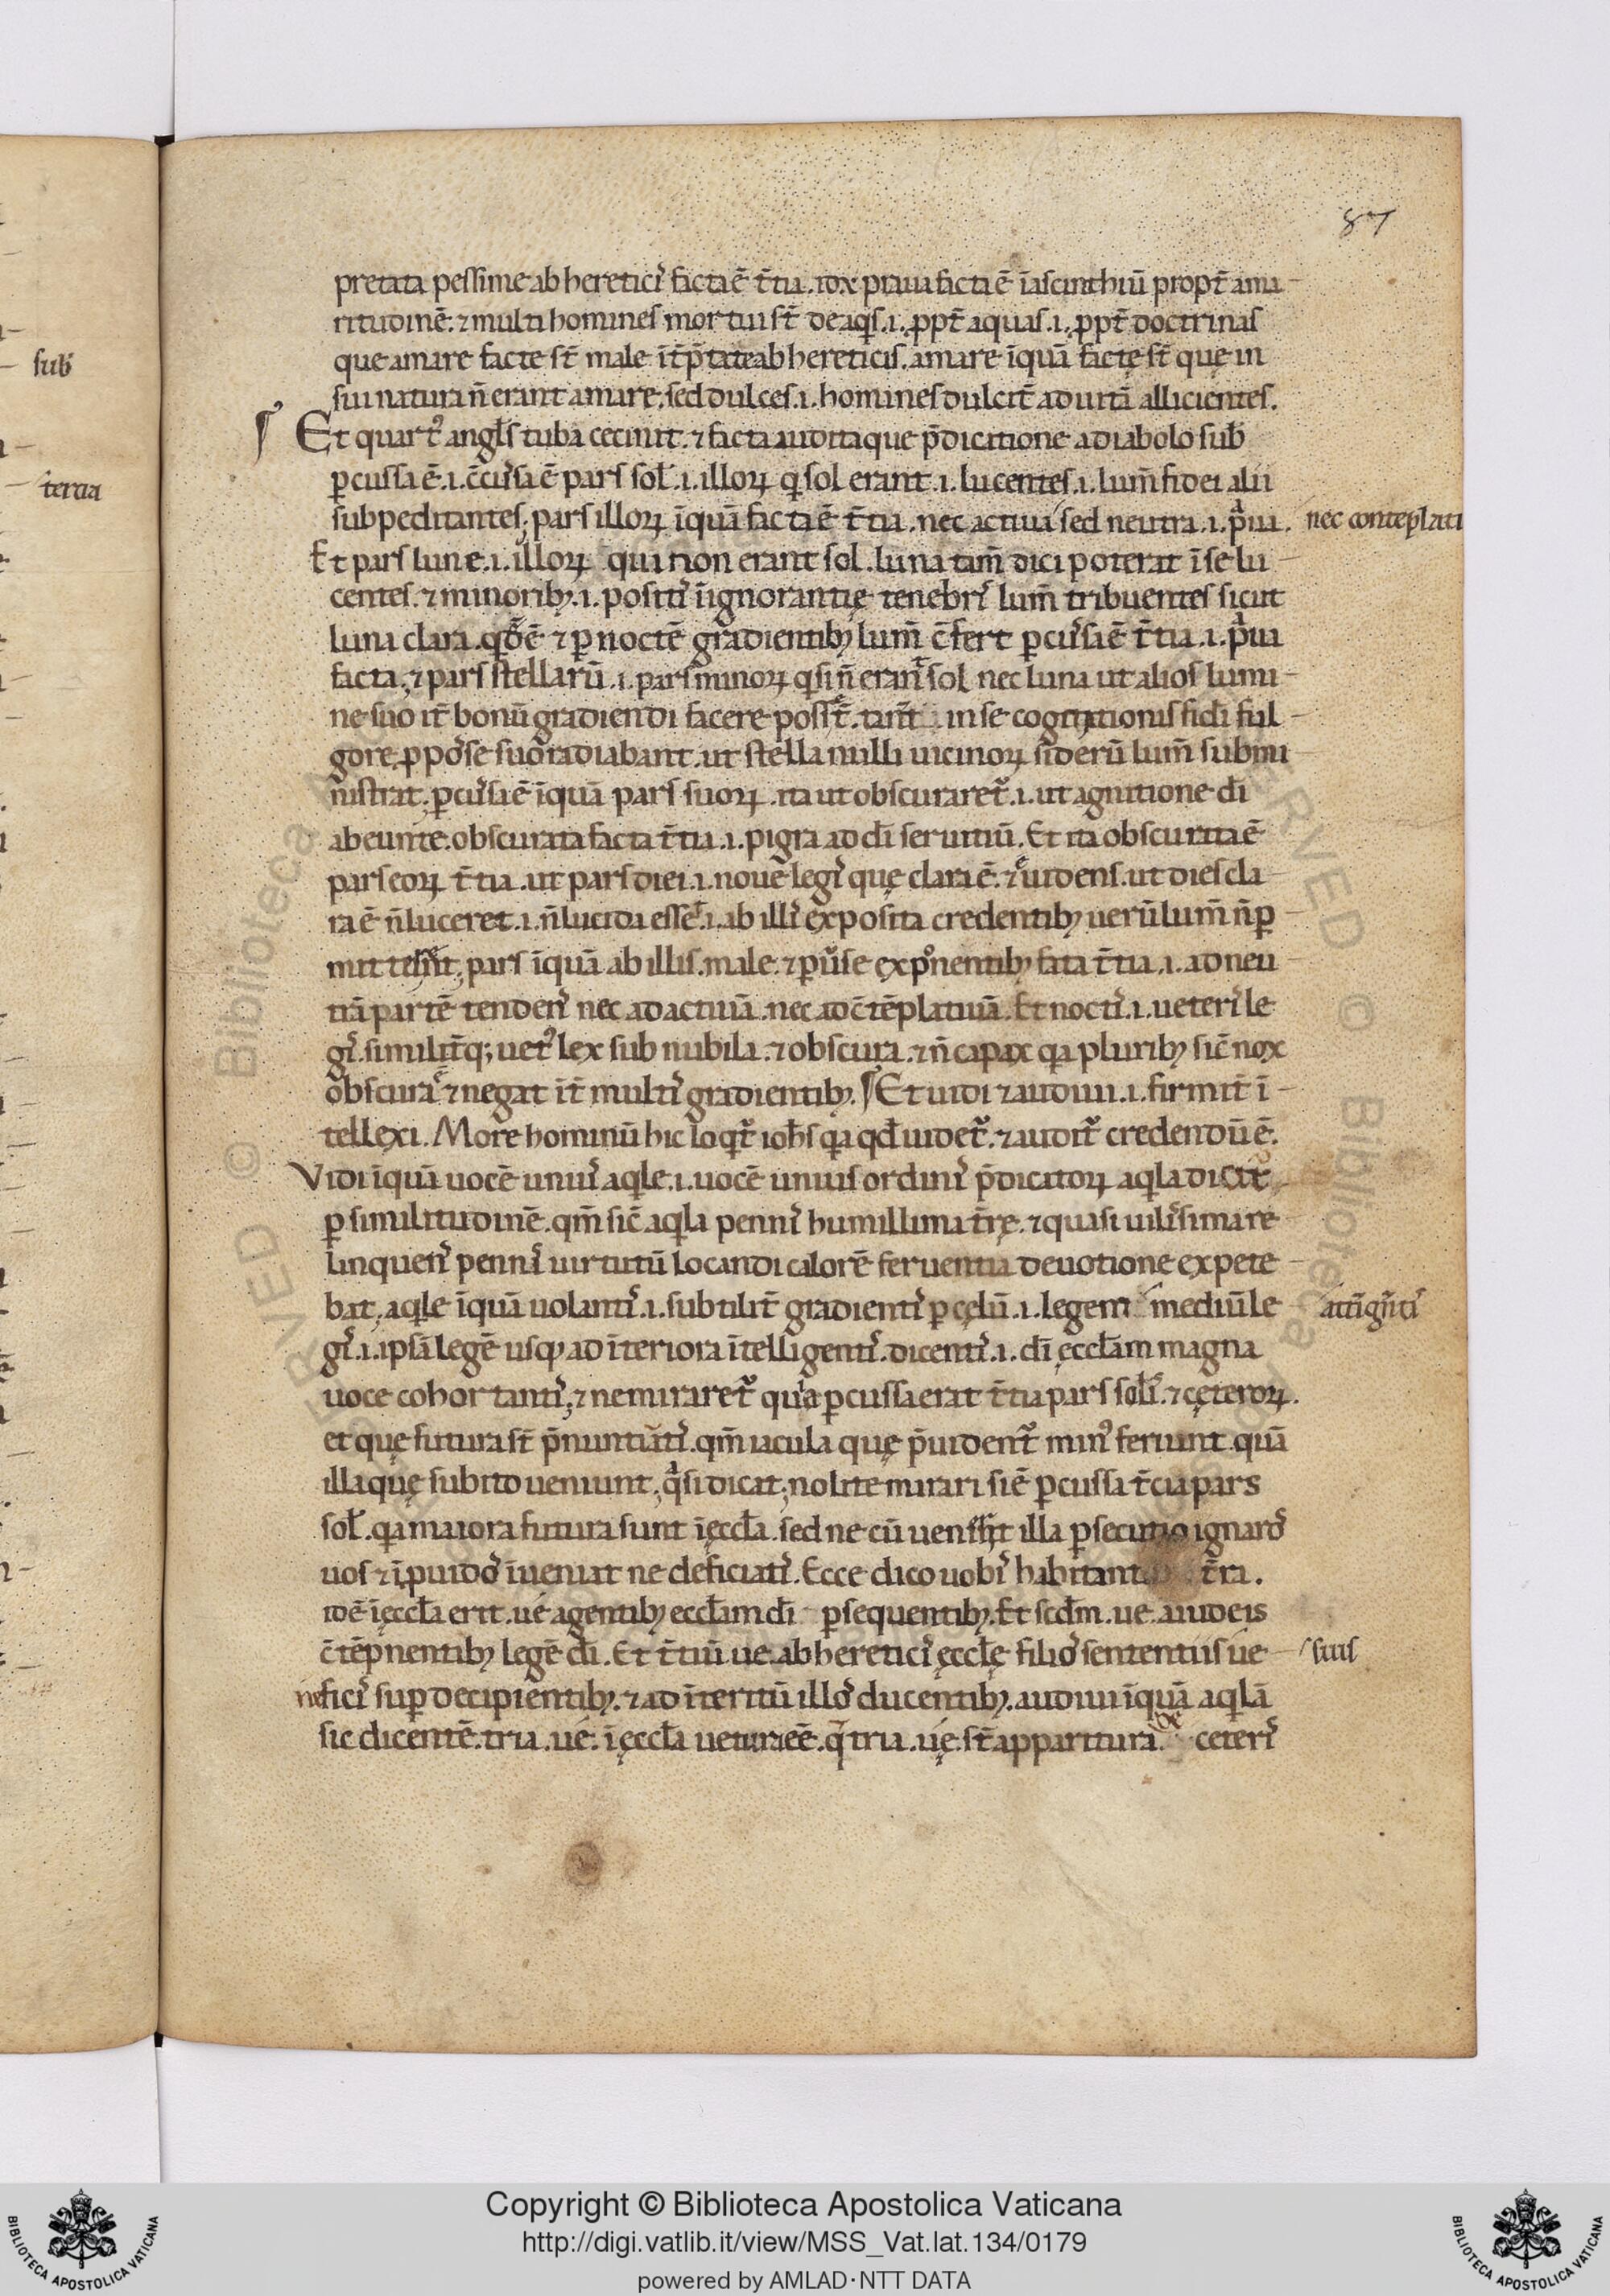 87
pretata pessime ab hereticꝭ facta ē t̄tia. uox praua facta ē ī ascinthiū propt̄ ama
ritudinē. ⁊ multi homines mortui st̄ de aqꝭ .i. ꝓpt̄ aquas .i. ꝓpt̄ doctrinas
que amare facte st̄ male īt̄p̄tate ab hereticis. amare īquā facte̜ st̄ que̜ in
sui natura n̄ erant amare, sed dulces .i. homines dulcit̄ ad uitā allicientes.
¶ Et quart᾽ angl̄s tuba cecinit. ⁊ facta audita que p̄dicatione a diabolo sub̄
ꝑcussa ē .i. c̄cus̄a ē pars sol̄ .i. illoꝝ q sol erant .i. lucentes .i. lum̄ fidei alii
subpeditantes; pars illoꝝ īquā facta ē t̄tia. nec actiua sed neutra .i. p̄ua. nec contēplati
Et pars lune .i. illoꝝ qui non erant sol. luna tam̄ dici poterat ī se lu
centes. ⁊ minoribꝫ .i. positꝭ ī ignorantie̜ tenebrꝭ lum̄ tribuentes sicut
luna clara. qd̄ ē ⁊ ꝑ noctē gradientibꝫ lum̄ c̄fert ꝑcus̄a ē t̄tia .i. p̄ua
facta; ⁊ pars stellarū .i. pars minoꝝ q si n̄ erant sol nec luna ut alios lumi
ne suo it̄ bonū gradiendi facere possēt̄. tam̄ in se cogitationis fidi ful
gore, ꝓ posse suo radiabant. ut stella nulli uicinoꝝ siderū lum̄ submi
nistrat. ꝑcus̄a ē īquā pars suoꝝ. ita ut obscuraret᾽ .i. ut agnitione dī
abeunte. obscurata facta t̄tia .i. pigra ad dī seruitiū. Et ita obscurata ē
pars eoꝝ t̄tia. ut pars diei .i. noue̜ legꝭ que̜ clara ē. ⁊ euidens. ut dies cla
ra ē n̄ luceret .i. n̄ lucida esset .i. ab illꝭ exposita credentibꝫ uerū lum̄ n̄ ꝑ
mittet; pars īquā ab illis. male. ⁊ ꝑuerse exponentibꝫ fata t̄tia .i. ad neu
trā partē tendens nec ad actiuā. nec ad c̄tēplatiuā. Et noctꝭ .i. ueterꝭ le
gꝭ. similit̄q; uet᾽ lex sub nubila. ⁊ obscura. ⁊ n̄ capax qa pluribꝫ sic̄ nox
obscura ē ⁊ negat it̄ multꝭ gradientibꝫ. ¶ Et uidi ⁊ audiui .i. firmit̄ ī
tellexi. More hominū hic loqt᾽ ioh̄s qa qd̄ uidet᾽. ⁊ audit᾽ credendū ē.
Vidi īquā uocē uniꝰ aqle .i. uocē unius ordinꝭ p̄dicatoꝝ aqla dicit᾽
ꝑ similitudinē. qm̄ sic̄ aqla pennꝭ humillima t̄re̜. ⁊ quasi uilissima re
linquens pennꝭ uirtutū locandi calorē feruentia deuotione expete
bat, aqle īquā uolantꝭ .i. subtilit̄ gradientꝭ ꝑ ce̜lū .i. legem mediū le attīgn̄tꝭ
gꝭ .i. ipsā legē usq ad īteriora ītelligentꝭ. dicentꝭ .i. dī e̜ccl̄am magna
uoce cohortantꝭ, ⁊ ne miraret᾽ quia ꝑcussa erat t̄tia pars solꝭ. ⁊ ce̜teroꝝ.
et que̜ futura st̄ p̄nuntiātꝭ. qm̄ iacula que̜ p̄uident᾽ min᾽ feriunt quā
illa que̜ subito ueniunt, qͣsi dicat; nolite mirari si ē ꝑcussa t̄cia pars
sol̄. qa maiora futura sunt ī e̜ccl̄a. sed ne cū uenerit illa ꝑsecutio ignaros
uos ⁊ īꝓuidos īueniat ne deficiatꝭ. Ecce dico uobꝭ habitant t̄ra.
ūe ī e̜ccl̄a erit. ue agentibꝫ eccl̄am dī ꝑsequentibꝫ. Et scd̄m. ue. a iudeis
c̄tēpnentibꝫ legē dī. Et t̄tiū ue. ab hereticꝭ e̜ccl̄e̜ filios sententiis ue suis
neficꝭ suꝑ decipientibꝫ. ⁊ ad īteritū illos ducentibꝫ. audiui īquā aqlā
sic dicentē. tria. ue. ī e̜ccl̄a uentura eē. q tria. ue̜. st̄ apparitura de ceterꝭ
sub̄
tercia
Copyright © Biblioteca Apostolica Vaticana
http://digi.vatlib.it/view/MSS_Vat.lat.134/0179
powered by AMLAD·NTT DATA
BIBLIOTECA APOSTOLICA VATICANA
BIBLIOTECA APOSTOLICA VATICANA